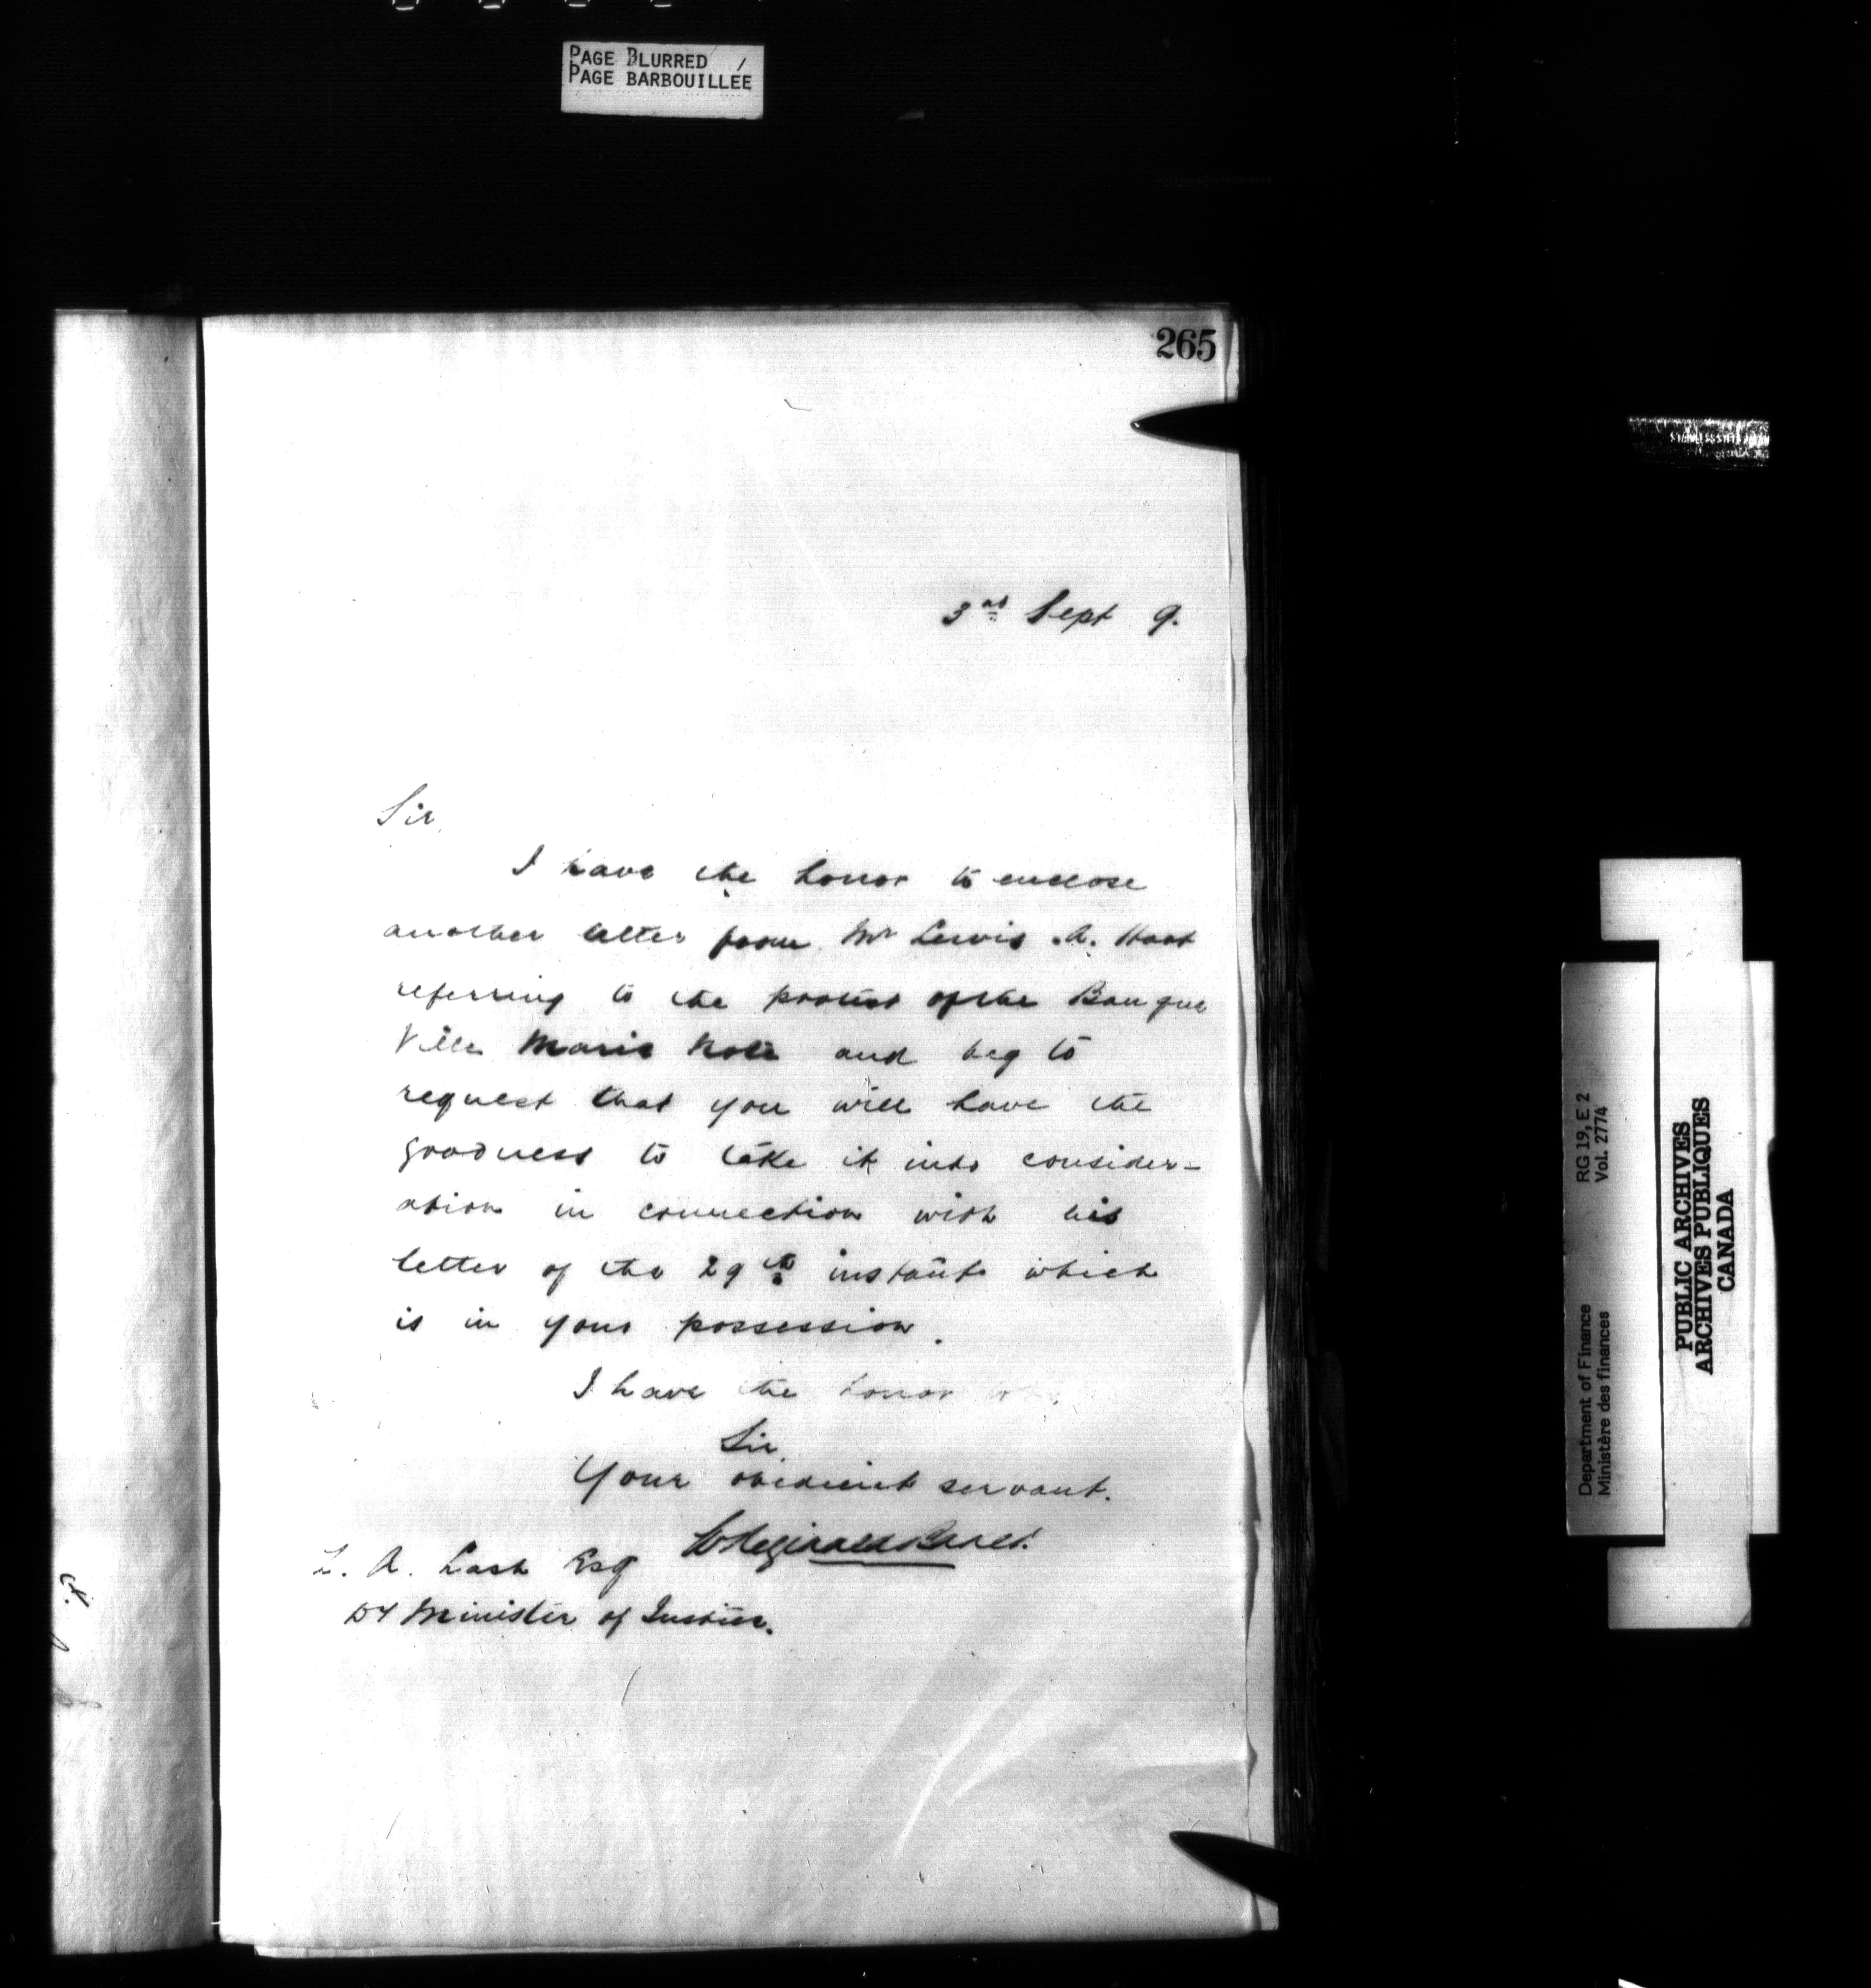 PAGE BLURRED /
PAGE BARBOUILLEE
265
3rd Sept 9.
Sir,
I have the honor to enclose
another letter from Mr Lewis A. Hart
referring to the protest of the Banque
Ville Marie Note and beg to
request that you will have the
goodness to take it into consider-
ation in connection with his
letter of the 29th instant which
is in your possession.
I have the honor to be,
Sir,
Your obedient servant.
A. Lash Esq
Dy Minister of Justice.
RG 19, E 2
Vol. 2774
Department of Finance
Ministère des finances
PUBLIC ARCHIVES
ARCHIVES PUBLIQUES
CANADA